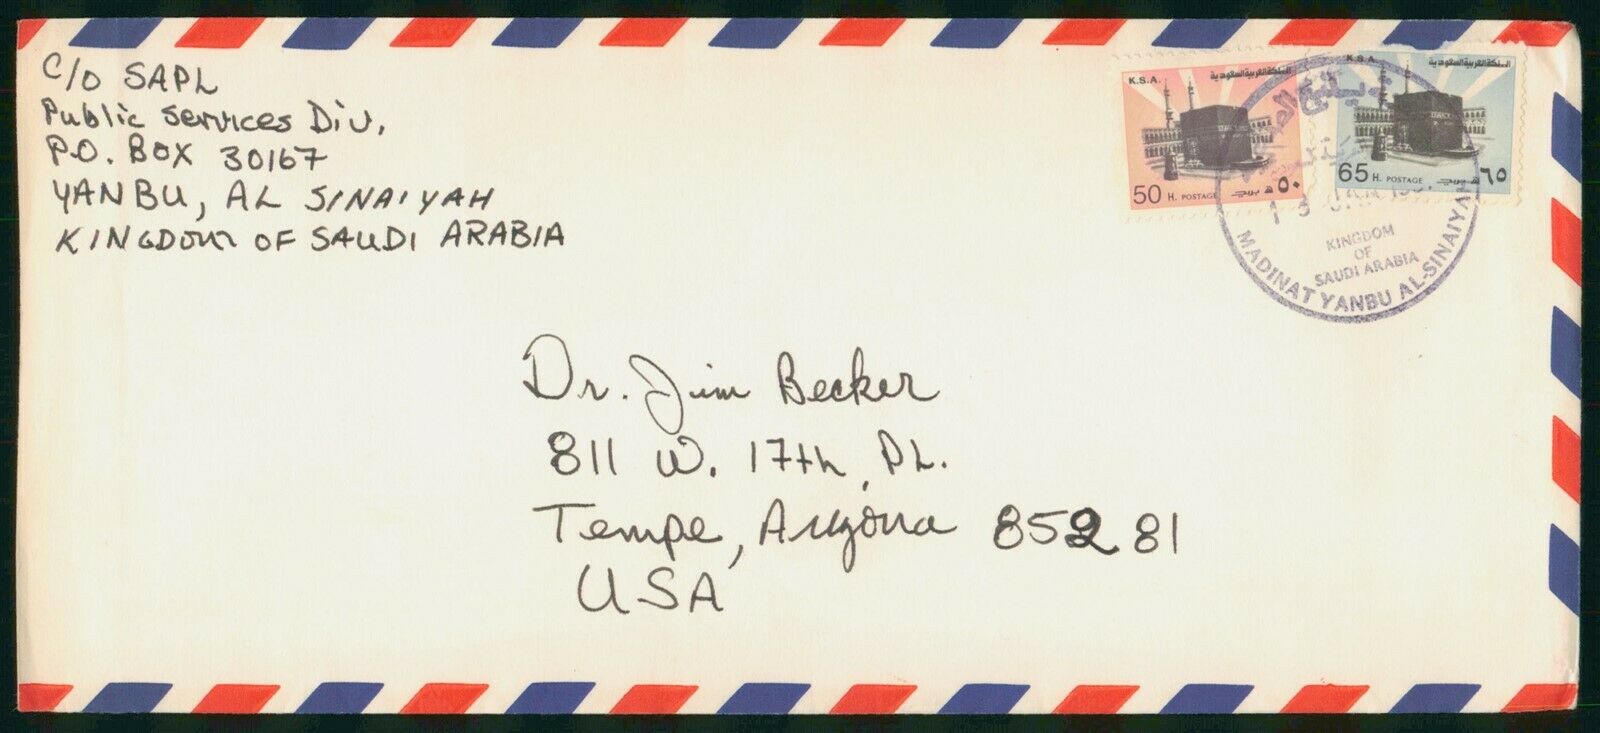 C/O SAPL
Public Services Div,
P.O. BOX 30167
YANBU, AL SINAIYAH
KINGDOM OF SAUDI ARABIA
K.S.A. المملكة العربية السعودية
50 H. POSTAGE ٥٠ هـ بريد
K.S.A. المملكة العربية السعودية
65 H. POSTAGE ٦٥ هـ بريد
13 JAN
KINGDOM
OF
SAUDI ARABIA
MADINAT YANBU AL-SINAIYAH
Dr. Jim Becker
811 W. 17th, PL.
Tempe, Arizona 85281
USA